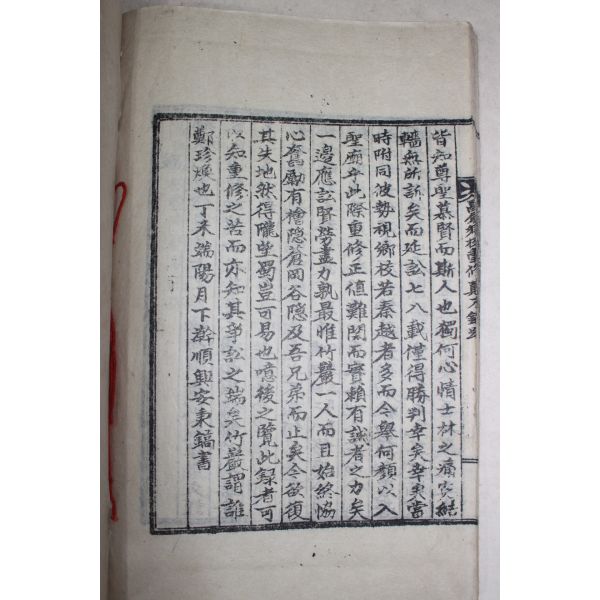 皆知尊聖慕賢而斯人也獨何心情士林之痛冤結
轖無所訴矣而延訟七八載僅得勝判幸矣幸矣當
時附同波勢視鄉校若秦越者多而今舉何顏以入
聖廟乎此際重修正值難関而實賴有誠者之力矣
一邊應訟賢勞盡力孰最惟竹嚴一人而且始終協
心奮勵有檜隱蒼岡谷隱及吾兄弟而止矣今欲復
其失地然得隴望蜀豈可易也噫後之覽此錄者可
以知重修之苦而亦知其爭訟之端矣竹嚴謂誰
鄭珍煥也丁未端陽月下澣順興安秉鎬書
鄉校重修